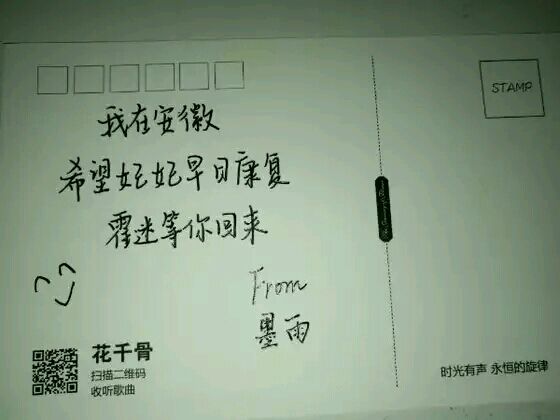 STAMP
我在安徽
希望妃妃早日康复
霍迷等你回来
From
墨雨
花千骨
扫描二维码
收听歌曲
时光有声 永恒的旋律